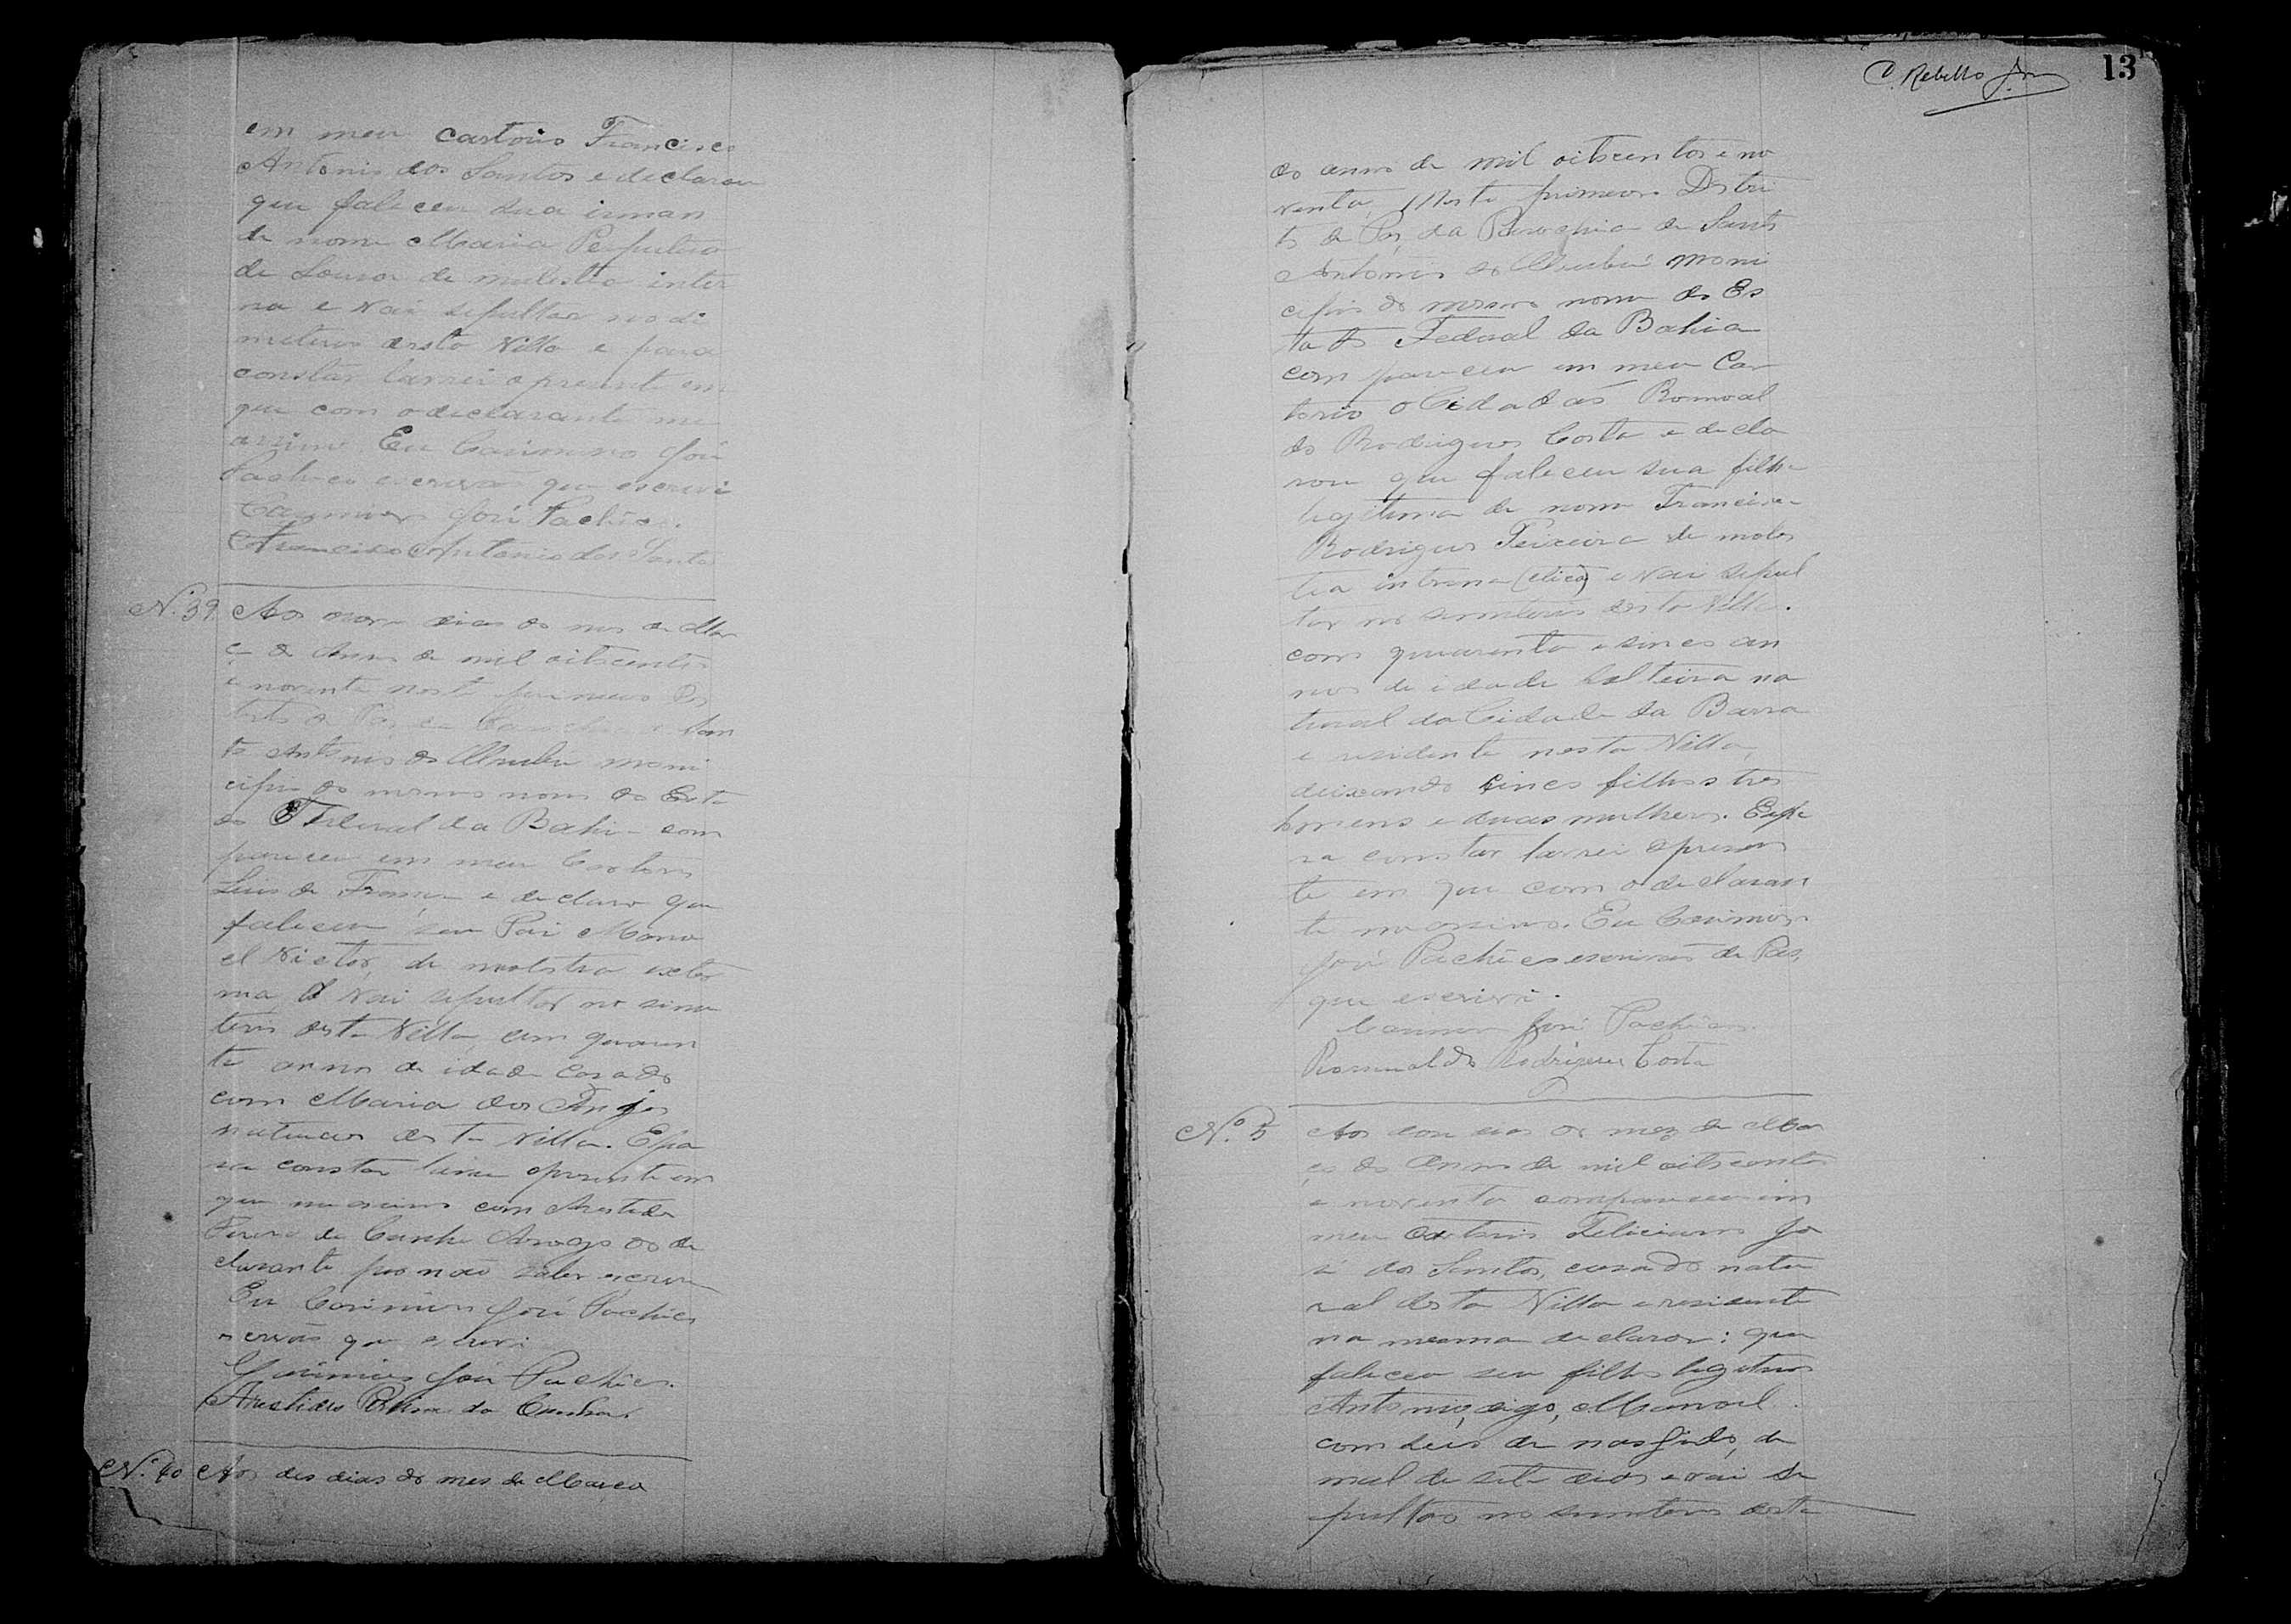 em meu cartorio Francisco
Antonio dos Santos e declarou
que faleceu sua irman
de nome Maria
de Souza de molestia inter
na e vai sepultar no si
miterio desta Villa e para
constar lavrei o presente em
que com o declarante me
assino Eu Casimiro José
Pacheco escrivão que escrevi
Casimiro José Pacheco.
Francisco Antonio dos Santos
N.º 39. Aos nove dias do mes de Mar
ço do Anno de mil oitocentos
e noventa neste primeiro Dis
to de Paz da Parochia de San
to Antonio do Urubú moni
cipio do mesmo nome do Esta
do Federal da Bahia com
pareceu em meu Cartorio
Luis de França e declarou que
faleceu seu Pai Mano
el Victor, de molestia exter
na e vai sepultar no simi
terio desta Villa, com quaren
ta annos de idade Casado
com Maria dos Anjos
naturaes desta Villa. E pa
ra constar lavrei o presente em
que me assino com Aristides
da Cunha Araujo do de
clarante por não saber escrever
Eu Casimiro José Pacheco
escrivão que escrevi
Casimiro José Pacheco.
Aristides da Cunha
N.º 40 Aos des dias do mes de Março
C. Rebello Jr. 13
do anno de mil oitocentos e no
venta, Neste primeiro Destri
to de Paz da Parochia de Santo
Antonio do Urubú moni
cipio do mesmo nome do Es
tado Federal da Bahia
compareceu em meu Car
torio o Cidadão Romoal
do Rodrigues Costa e decla
rou que faleceu sua filha
legitima de nome Francisca
Rodrigues Teixeira de moles
tia interna (etica) e vai sepul
tar no semiterio desta Villa.
com quarenta e sinco an
nos de idade Solteira na
tural da Cidade da Barra
e residente nesta Villa,
deixando cinco filhos tres
homens e duas mulheres. E pa
ra constar lavrei o presen
te em que com o declaran
te me assino. Eu Casimiro
José Pacheco escrivão de Paz,
que escrevi.
Casimiro José Pacheco.
Romualdo Rodrigues Costa
N.º 5 Aos dias do mez de Mar
ço do Anno de mil oitocentos
e noventa compareceu em
meu Cartorio Feliciano Jo
sé dos Santos, casado natu
ral desta Villa e residente
na mesma declarou: que
faleceu seu filho legitimo
Antonio, digo, Manoel
com seis de nascido, de
mal de sete dias e vai se
pultar no semiterio desta